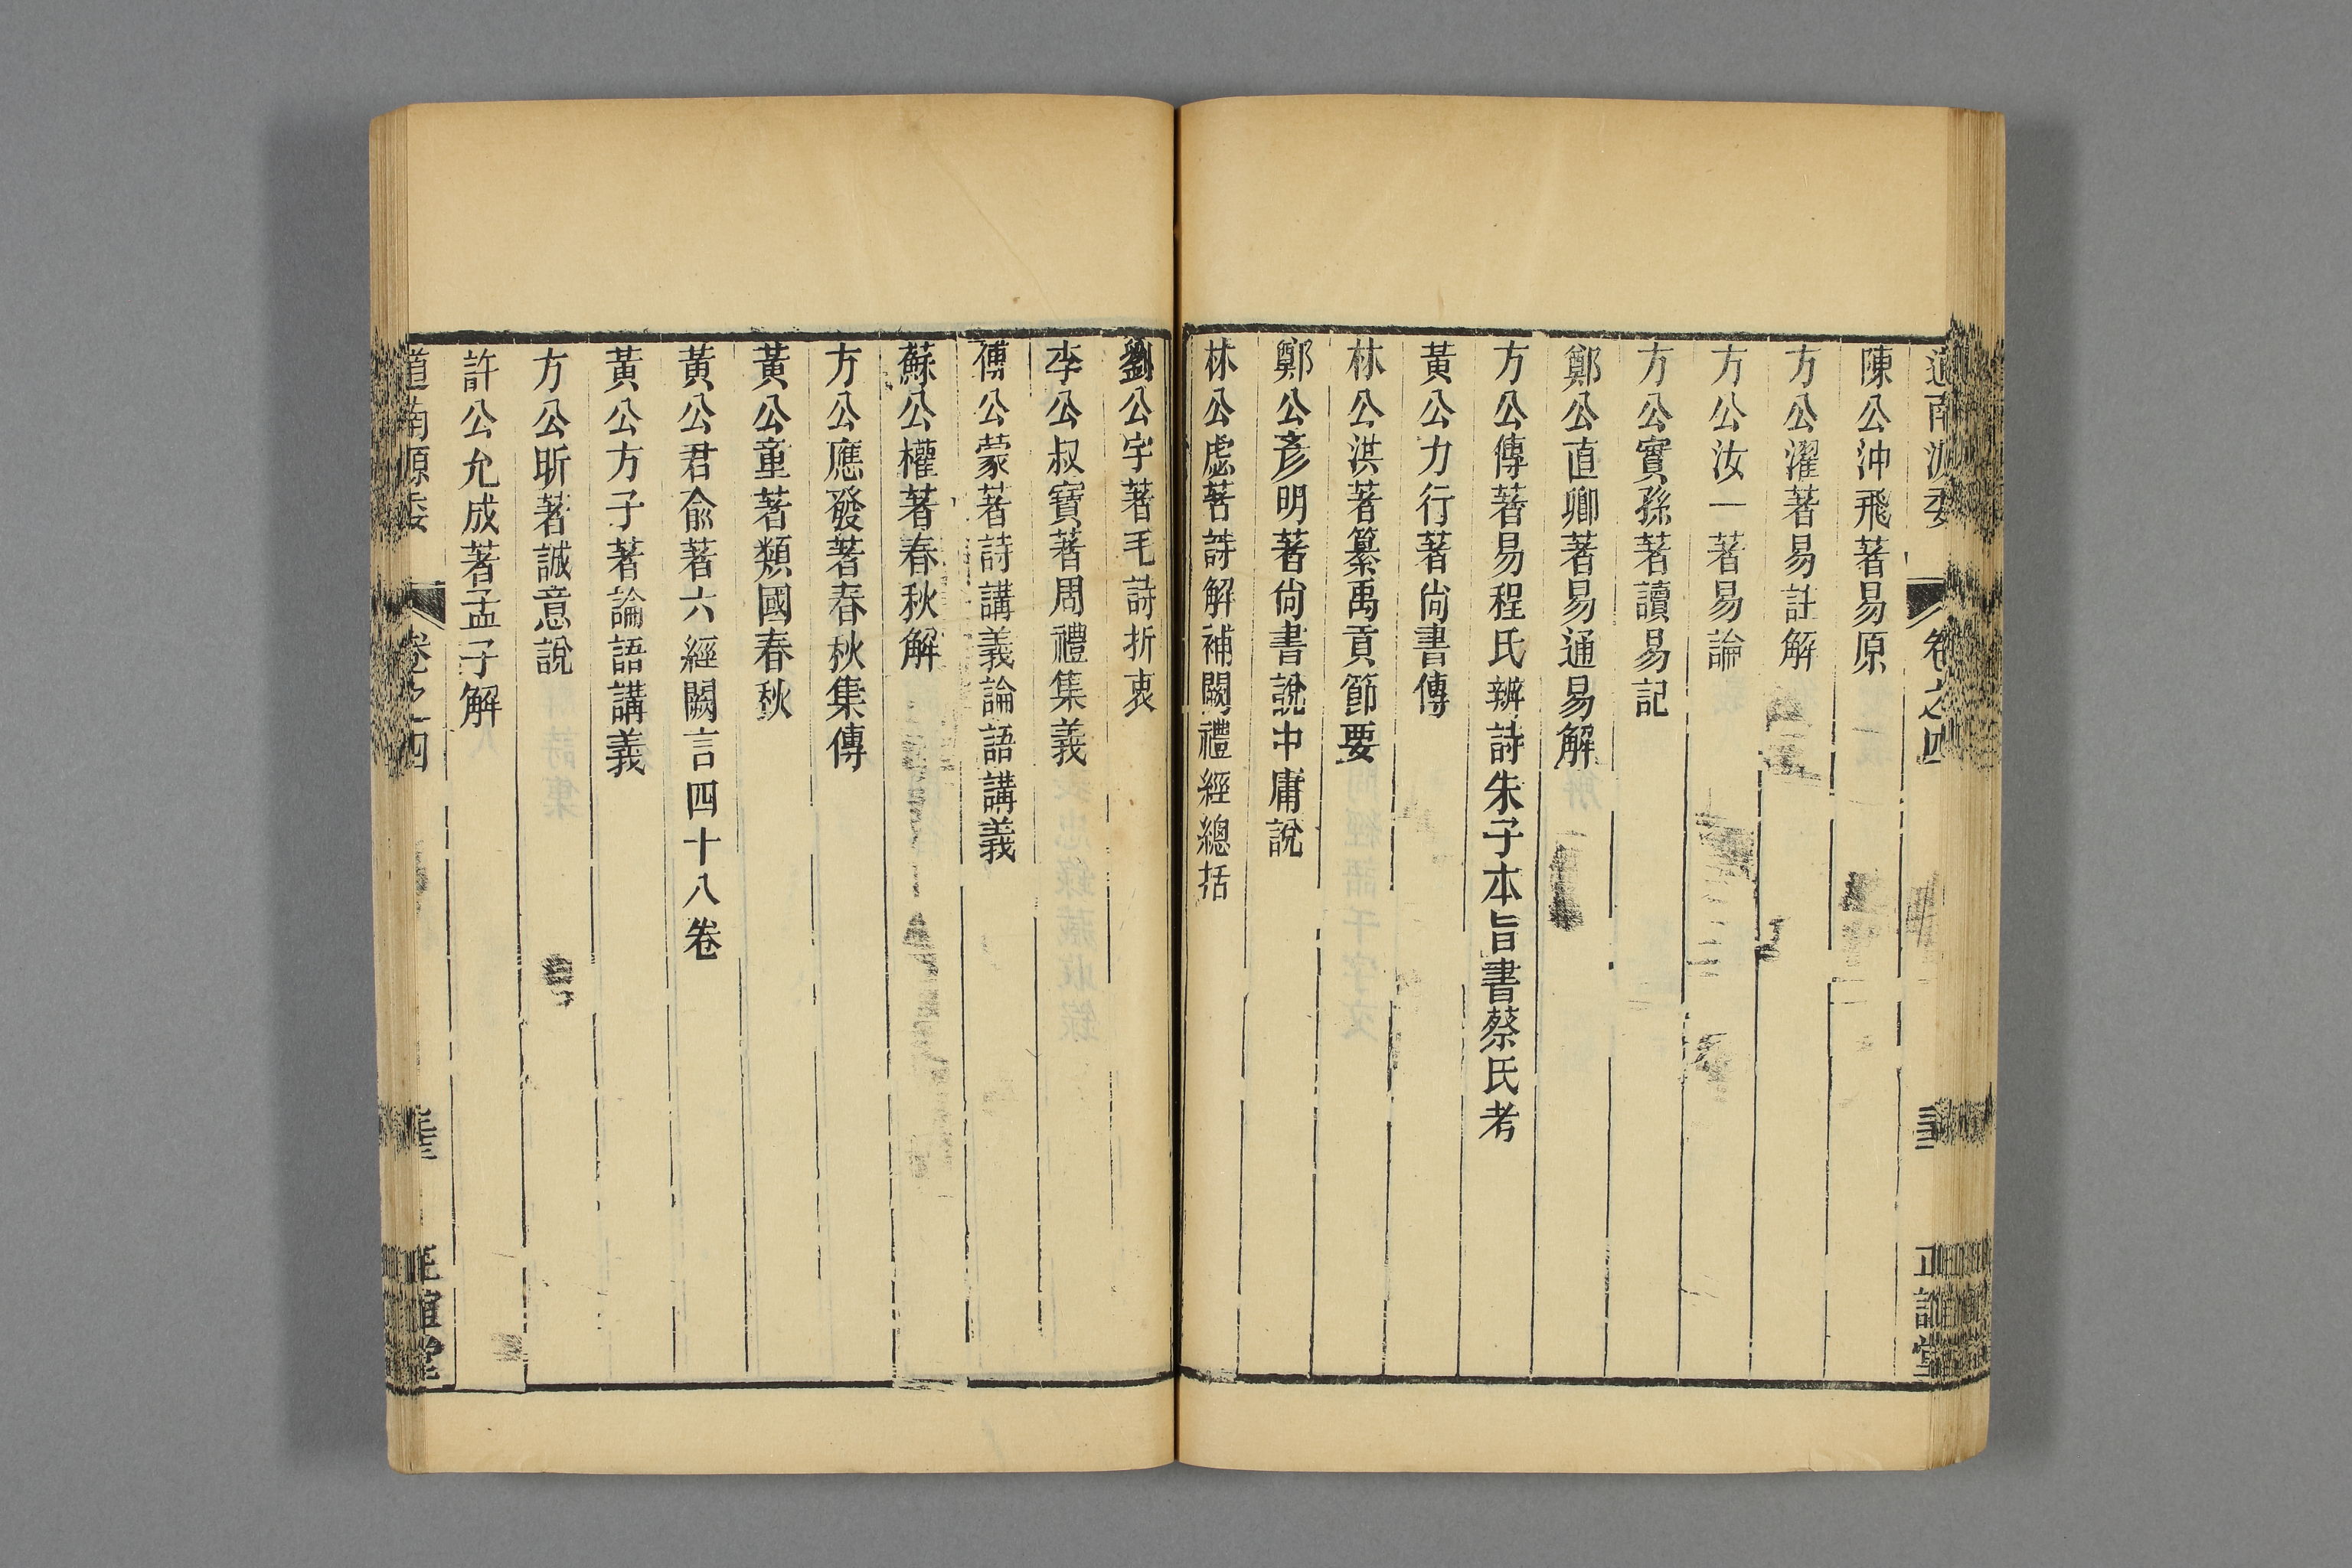 道南源委 卷之四 正誼堂
陳公沖飛著易原
方公濯著易註解
方公汝一著易論
方公實孫著讀易記
鄭公直卿著易通易解
方公傳著易程氏辨詩朱子本旨書蔡氏考
黃公力行著尙書傳
林公洪著纂禹貢節要
鄭公彥明著尙書說中庸說
林公虙著詩解補闕禮經總括
劉公宇著毛詩折衷
李公叔寶著周禮集義
傅公蒙著詩講義論語講義
蘇公權著春秋解
方公應發著春秋集傳
黃公童著類國春秋
黃公君兪著六經闕言四十八卷
黃公方子著論語講義
方公昕著誠意說
許公允成著孟子解
道南源委 卷之四 正誼堂